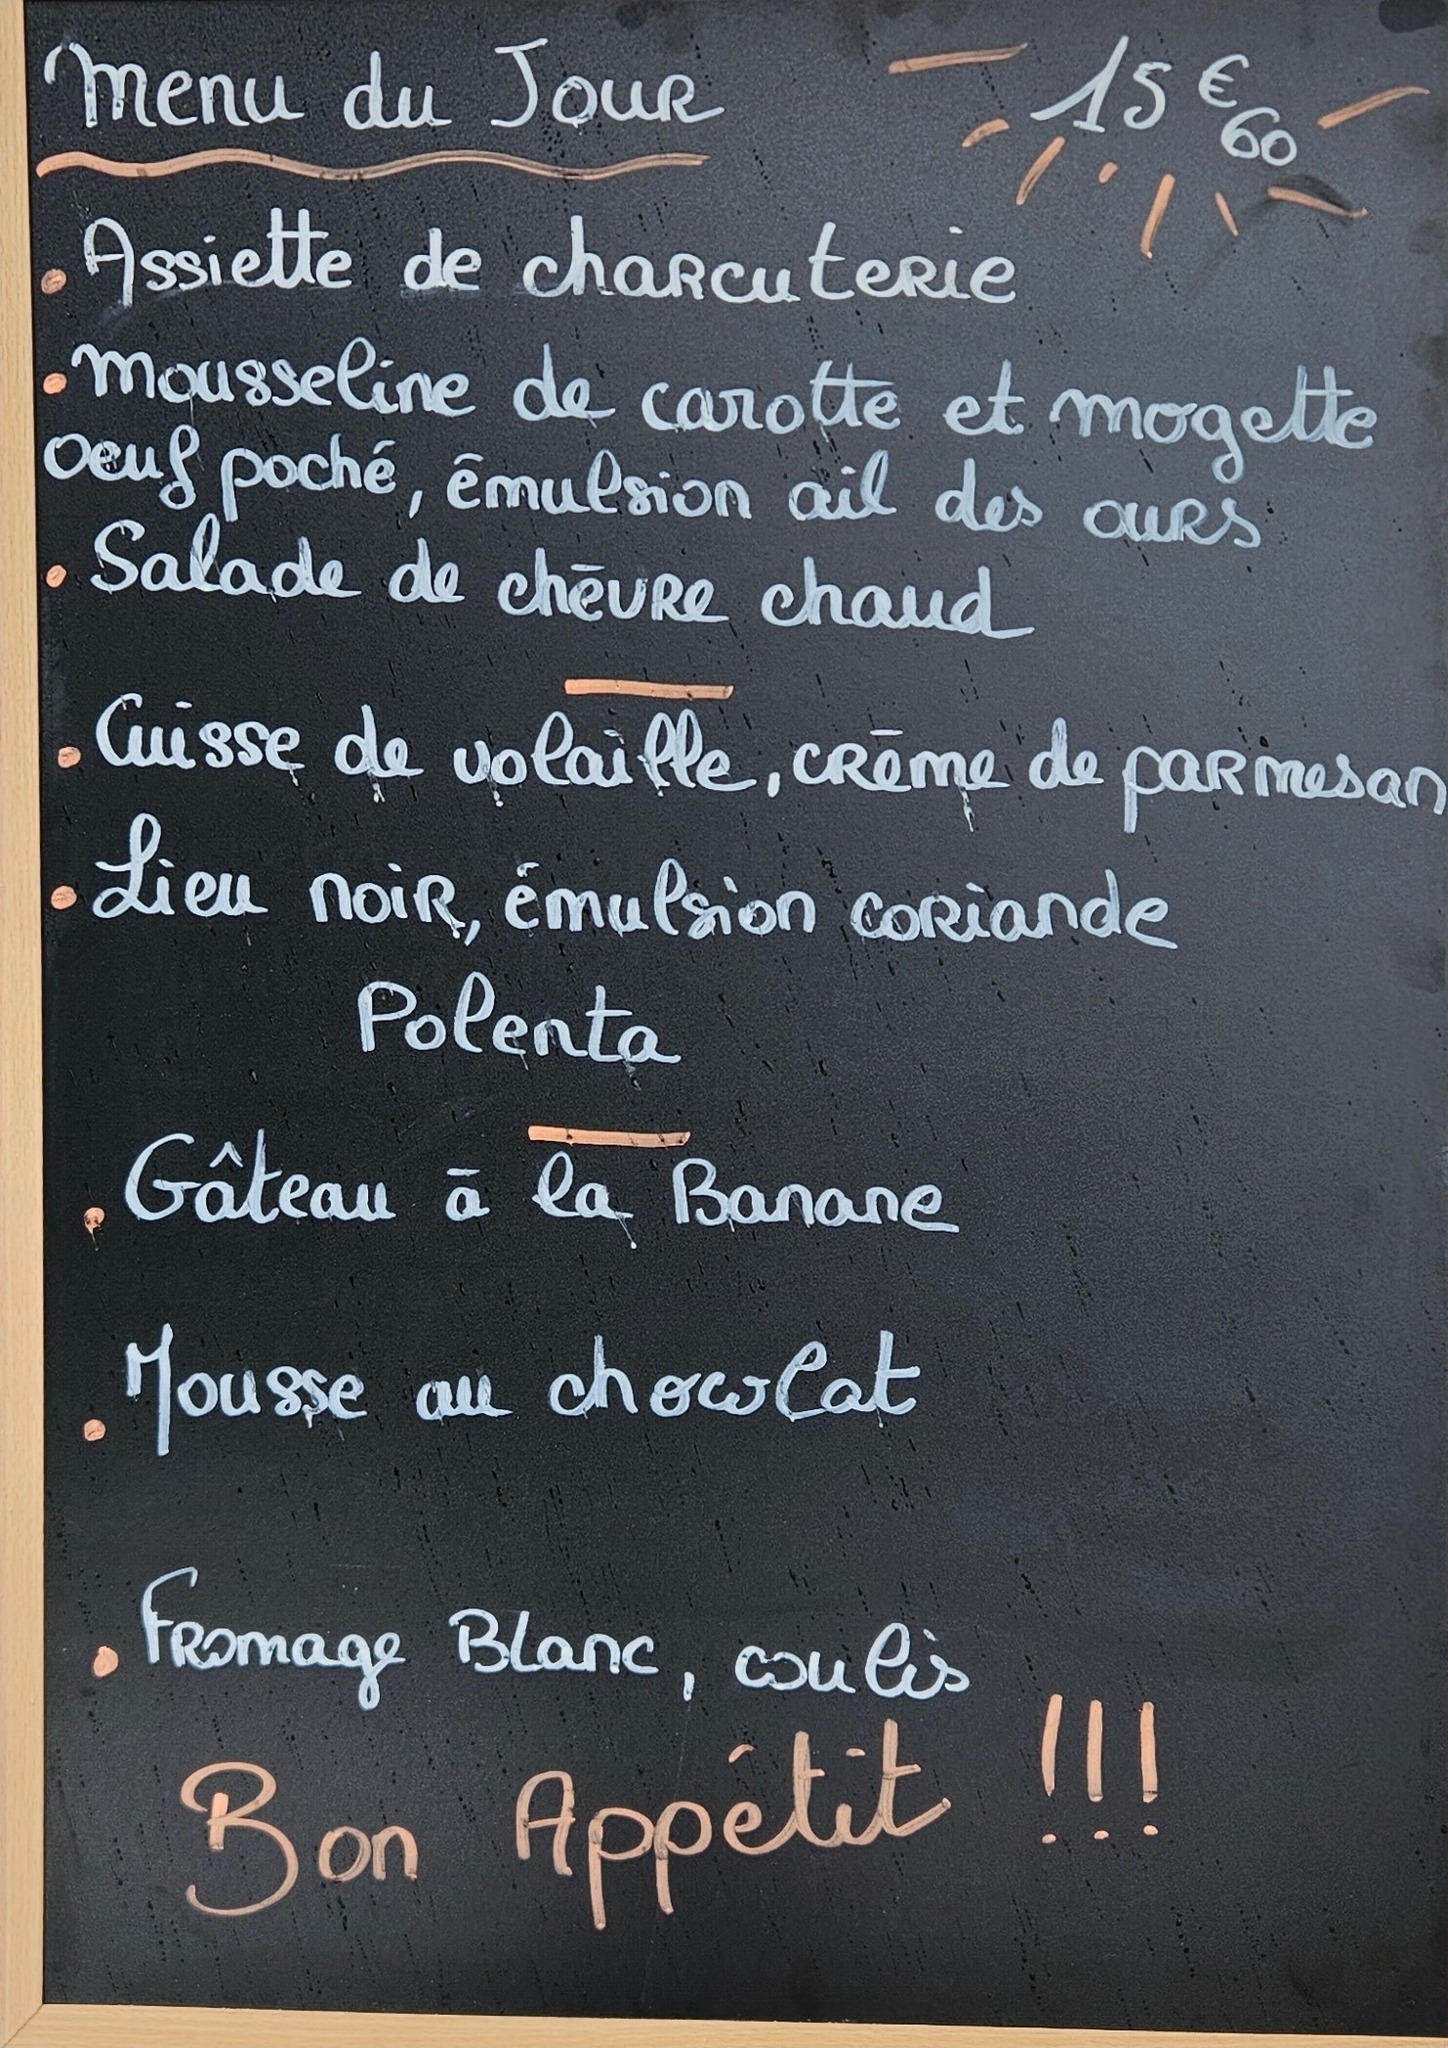 Menu du Jour 15€60
Assiette de charcuterie
Mousseline de carotte et mogette
oeuf poché, émulsion ail des ours
Salade de chèvre chaud
Cuisse de volaille, crème de parmesan
Lieu noir, émulsion coriande
Polenta
Gâteau à la Banane
Mousse au chocolat
Fromage Blanc, coulis
Bon Appétit !!!